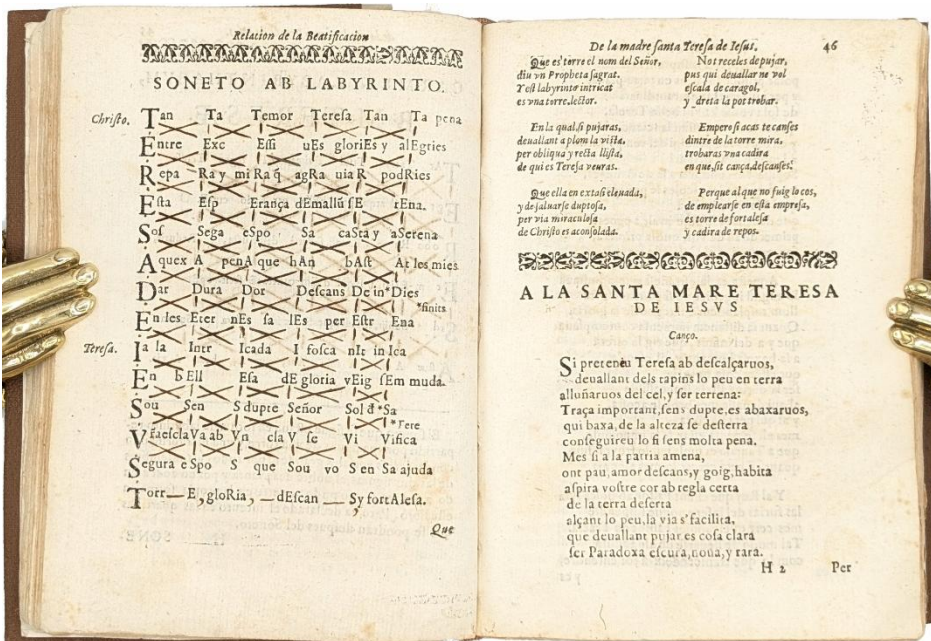 Relacion de la Beatificacion
SONETO AB LABYRINTO.
Christo. Tan Ta Temor Teresa Tan Ta pena
Entre Exc Essi uEs gloriEs y alEgries
Repa Ra y mi Ra q̃ agRa uiaR podRies
Esta Esp Erança dEmallũ ſE rEna.
Sos Sega eSpo Sa caSta y aSerena
Aquex A penA que hAn bASt At les mies
Dar Dura Dor Descans De in*Dies
*finits
En les Eter nEs sa lEs per Estr Ena
Teresa. Ia la Intr Icada I fosca nIt in Ica
En bEll Esa dE gloria vEig ſEm muda.
Sou Sen Sdupte Señor Sol d*Sa
*Tere
VſraesclaVa ab Vn claV se Vi Vifica
Segura eSpo S que Sou vo S en Sa ajuda
Torr—E, gloRia, —dEscan — Sy fortAlesa.
Que
De la madre santa Teresa de Iesus. 46
Que es torre el nom del Señor,
diu vn Propheta sagrat.
Y est labyrinto intricat
es vna torre, lector.
En la qual, si pujaras,
deuallant a plom la vista,
per obliqua y recta llista,
de qui es Teresa veuras.
Que ella en extasi eleuada,
y de saluarse duptosa,
per via miraculosa
de Christo es aconsolada.
Not receles de pujar,
pus qui deuallar ne vol
escala de caragol,
y dreta la pot trobar.
Empero si acas te canses
dintre de la torre mira,
trobaras vna cadira
en que, sit cança, descanses.
Perque al que no fuig lo cos,
de emplearse en esta empresa,
es torre de fortalesa
y cadira de repos.
A LA SANTA MARE TERESA
DE IESVS
Canço.
Si preteneu Teresa ab descalçaruos,
deuallant dels tapins lo peu en terra
alluñaruos del cel, y ser terrena:
Traça important, sens dupte, es abaxaruos,
qui baxa, de la alteza se desterra
conseguireu lo fi sens molta pena.
Mes si a la patria amena,
ont pau, amor descans, y goig, habita
aspira vostre cor ab regla certa
de la terra deserta
alçant lo peu, la via s'facilita,
que deuallant pujar es cosa clara
ser Paradoxa escura, noua, y rara.
H 2 Per